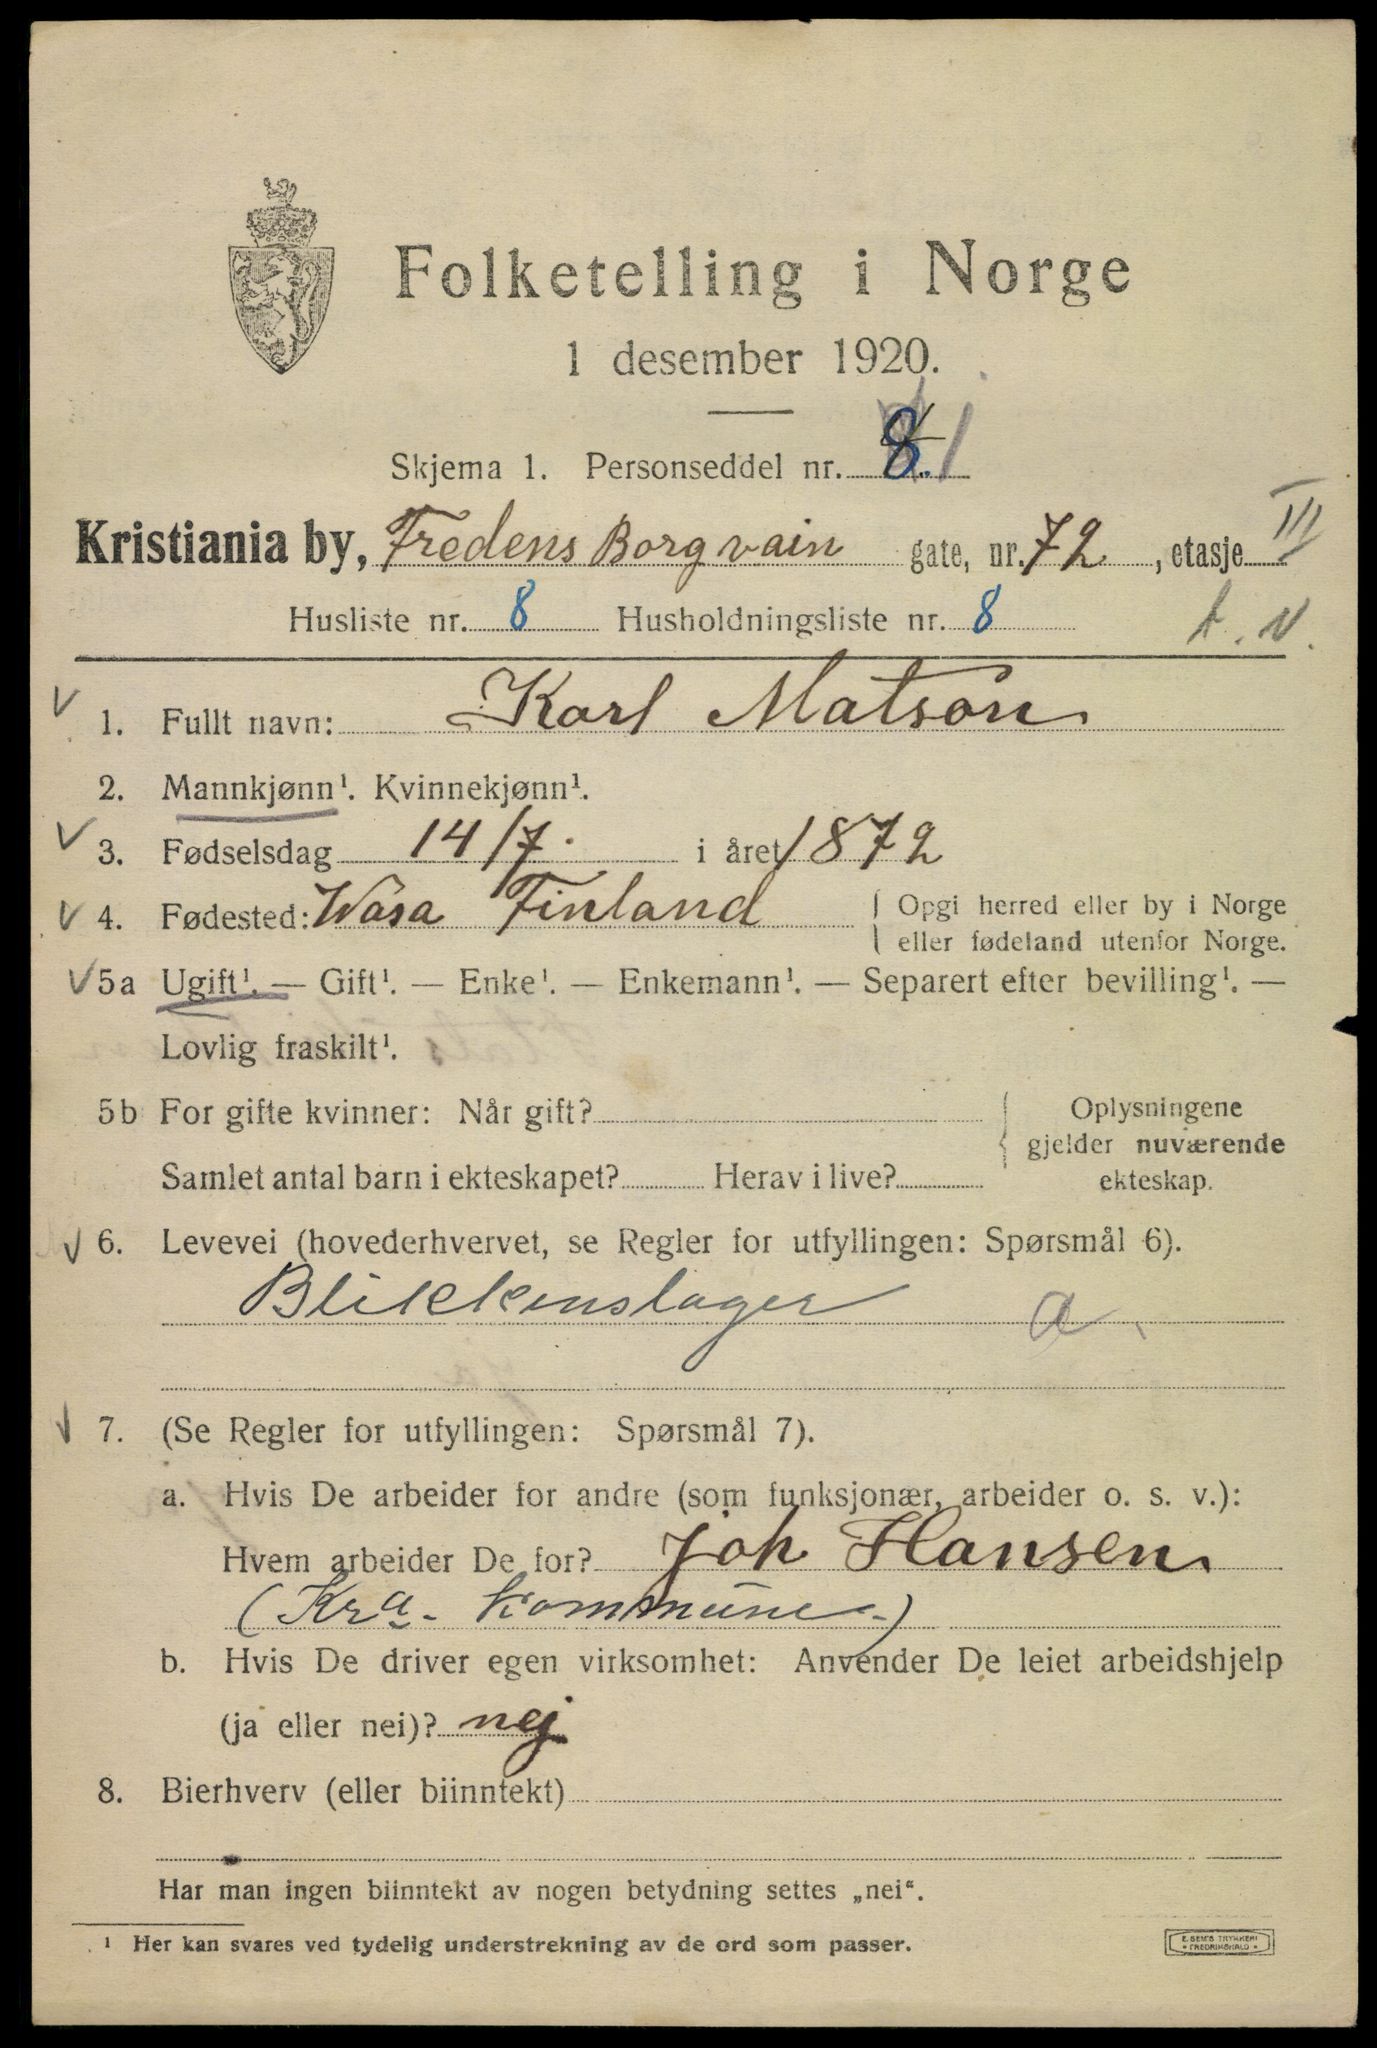 Folketelling i Norge
1 desember 1920.
Skjema 1. Personseddel nr. 8 1
Kristiania by, Fredens Borg vain gate, nr. 72, etasje III
Husliste nr. 8 Husholdningsliste nr. 8 t. v.
1. Fullt navn: Karl Matson
2. Mannkjønn¹. Kvinnekjønn¹.
3. Fødselsdag 14/7. i året 1872
4. Fødested: Wasa Finland { Opgi herred eller by i Norge
eller fødeland utenfor Norge.
5a Ugift¹. — Gift¹. — Enke¹. — Enkemann¹. — Separert efter bevilling¹. —
Lovlig fraskilt¹.
5b For gifte kvinner: Når gift? { Oplysningene
gjelder nuværende
Samlet antal barn i ekteskapet? Herav i live? ekteskap.
6. Levevei (hovederhvervet, se Regler for utfyllingen: Spørsmål 6).
Blikkenslager a.
7. (Se Regler for utfyllingen: Spørsmål 7).
a. Hvis De arbeider for andre (som funksjonær, arbeider o. s. v.):
Hvem arbeider De for? Joh Hansen
(Kra. kommune.)
b. Hvis De driver egen virksomhet: Anvender De leiet arbeidshjelp
(ja eller nei)? nej
8. Bierhverv (eller biinntekt)
Har man ingen biinntekt av nogen betydning settes „nei“.
¹ Her kan svares ved tydelig understrekning av de ord som passer.
E. SEM'S TRYKKERI
• FREDRIKSHALD •